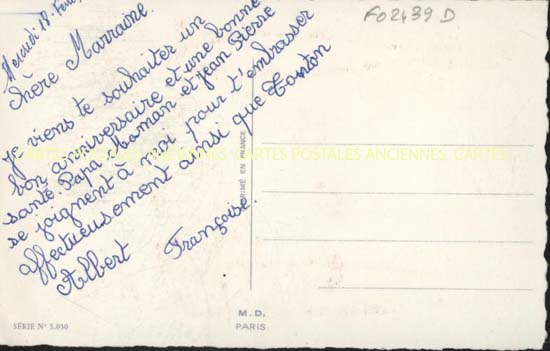 Mercredi 18 Fév
F02439 D
Chère Marraine.
Je viens te souhaiter un
bon anniversaire et une bonne
santé. Papa, Maman et Jean Pierre
se joignent à moi pour t'embrasser
affectueusement ainsi que Tonton
Albert
Françoise
CARTES POSTALES ANCIENNES CARTES POSTALES ANCIENNES CARTES
IMPRIMÉ EN FRANCE
M. D.
PARIS
SÉRIE N° 3.030